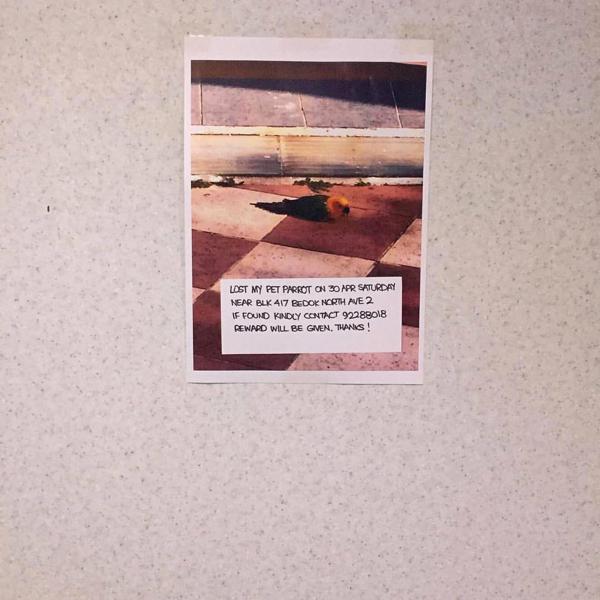 LOST MY PET PARROT ON 30 APR SATURDAY
NEAR BLK 417 BEDOK NORTH AVE 2
IF FOUND KINDLY CONTACT 92288018
REWARD WILL BE GIVEN. THANKS!